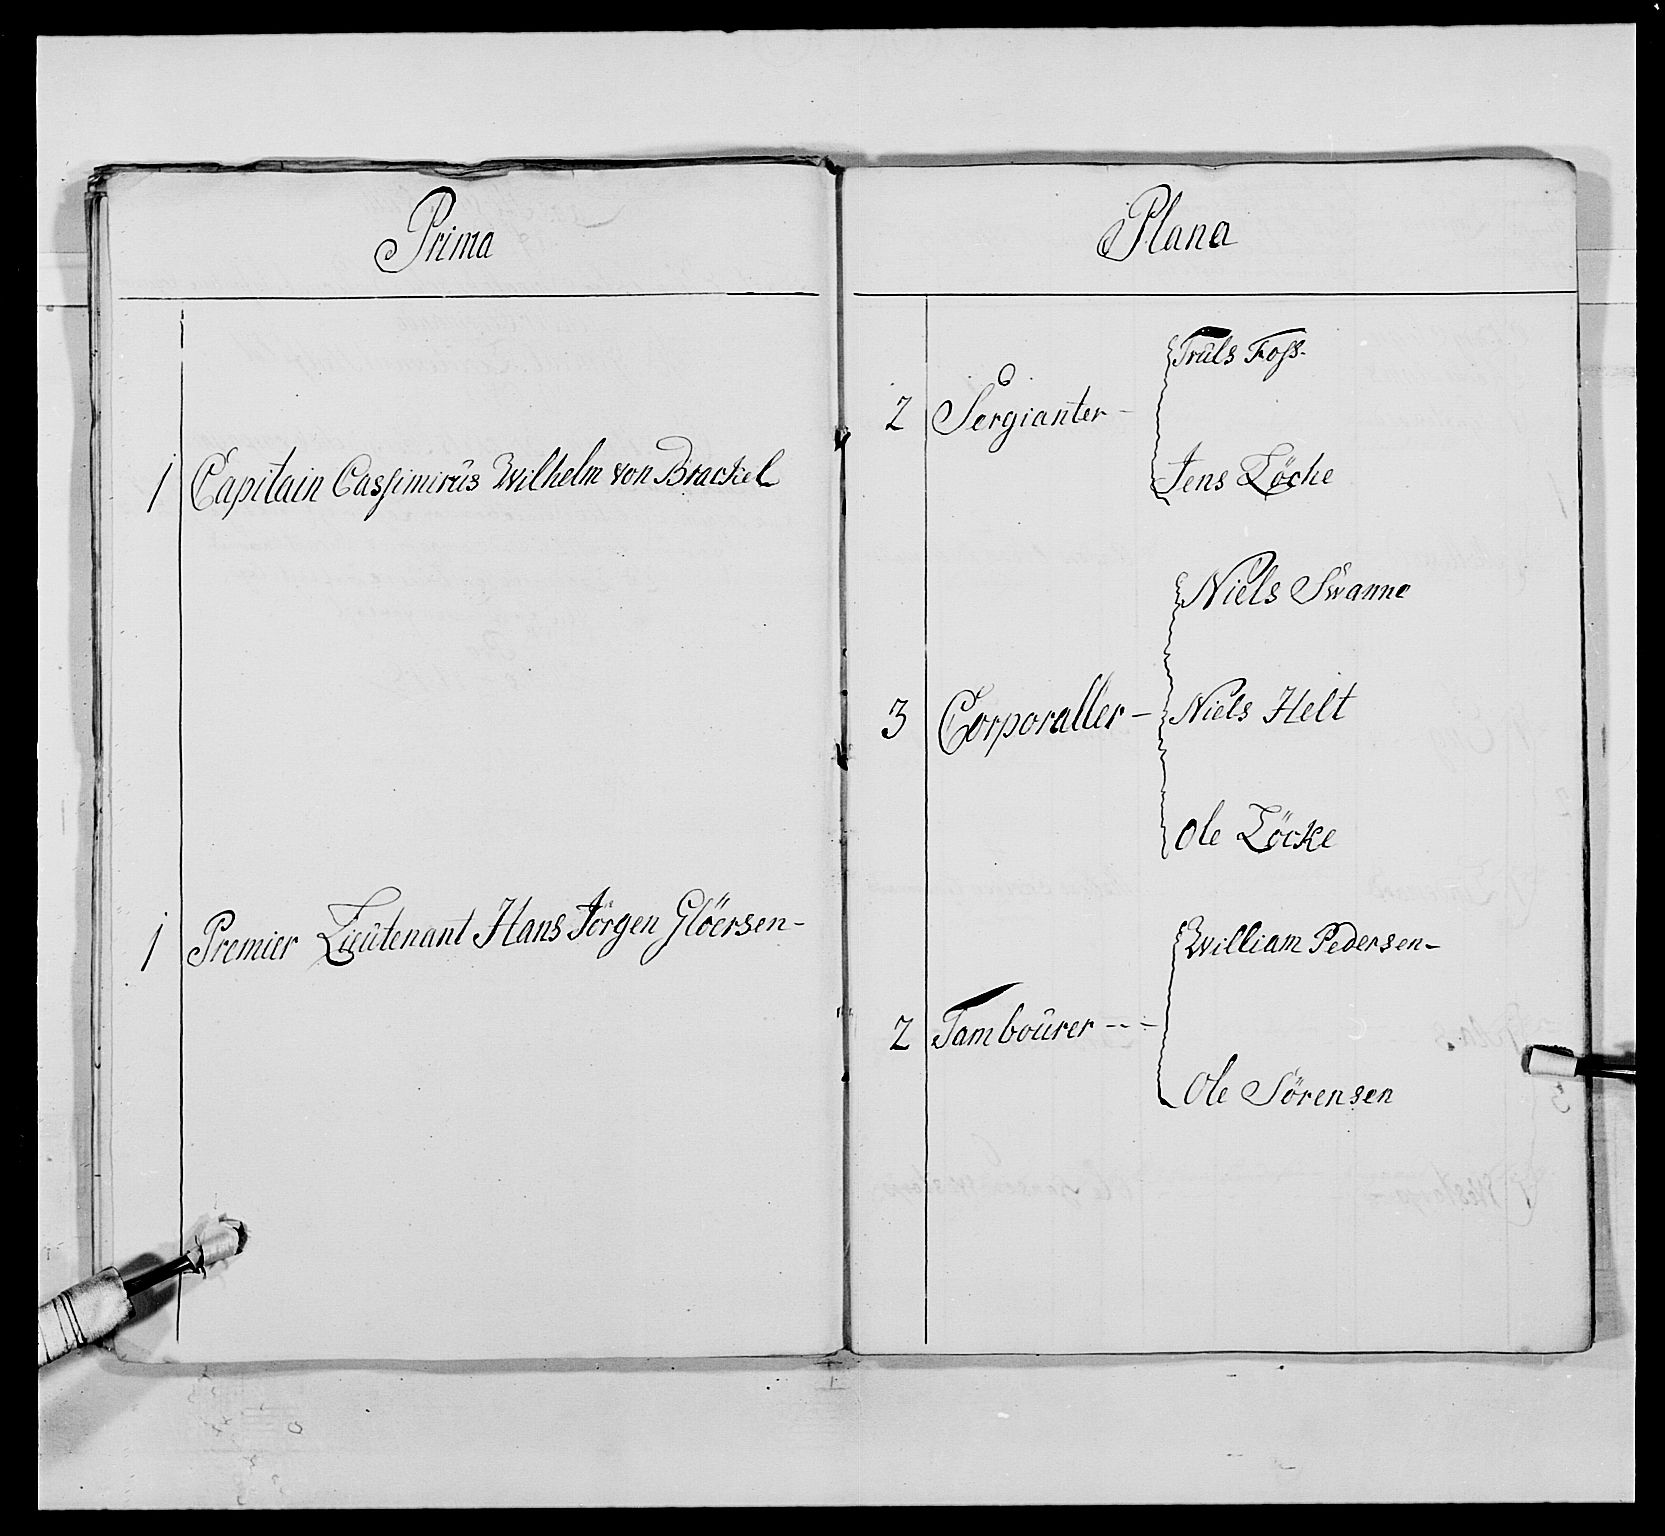 Prima
1 Capitain Cassimirus Wilhelm von Brackel
1 Premier Lieutenant Hans Jörgen Glöersen-
Plana
Truls Foss.
2 Sergianter-
Jens Löcke
Niels Swanne
3 Corporaller- Niels Helt
Ole Löcke
William Pedersen-
2 Tambourer---
Ole Sörensen